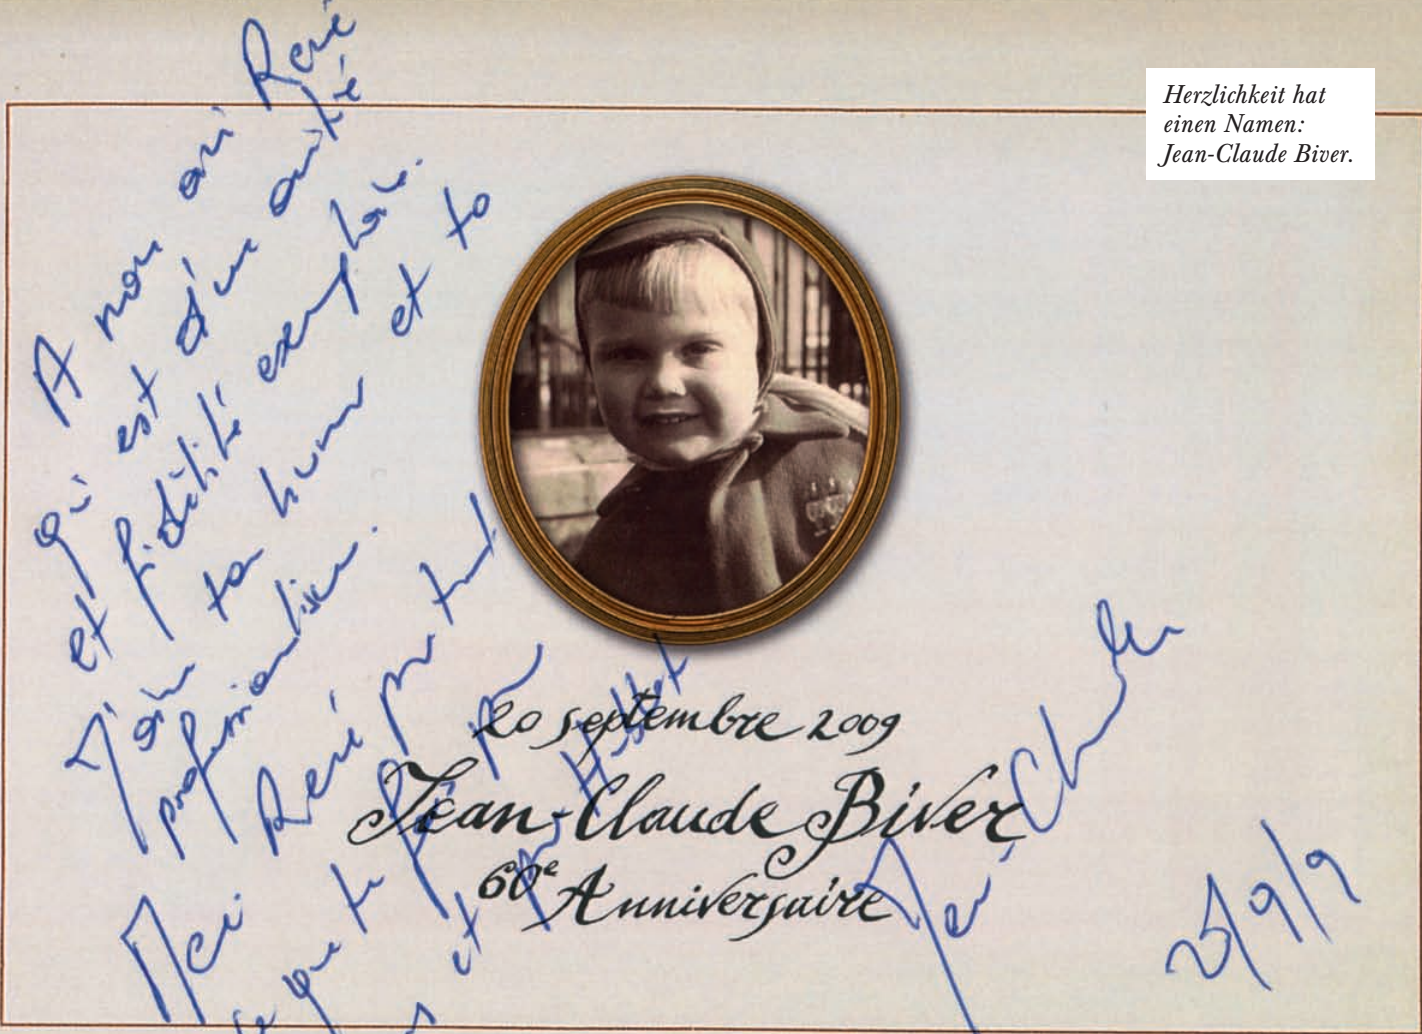 Herzlichkeit hat
einen Namen:
Jean-Claude Biver.
A mon ami René
qui est d'une amitié
et fidélité exemplaire.
J'aime ton humour et to
professionalisme.
Merci René pour tout
ce que tu fais pour
s et pour Hublot
20 septembre 2009
Jean-Claude Biver
60e Anniversaire
Jean-Claude
25/9/9